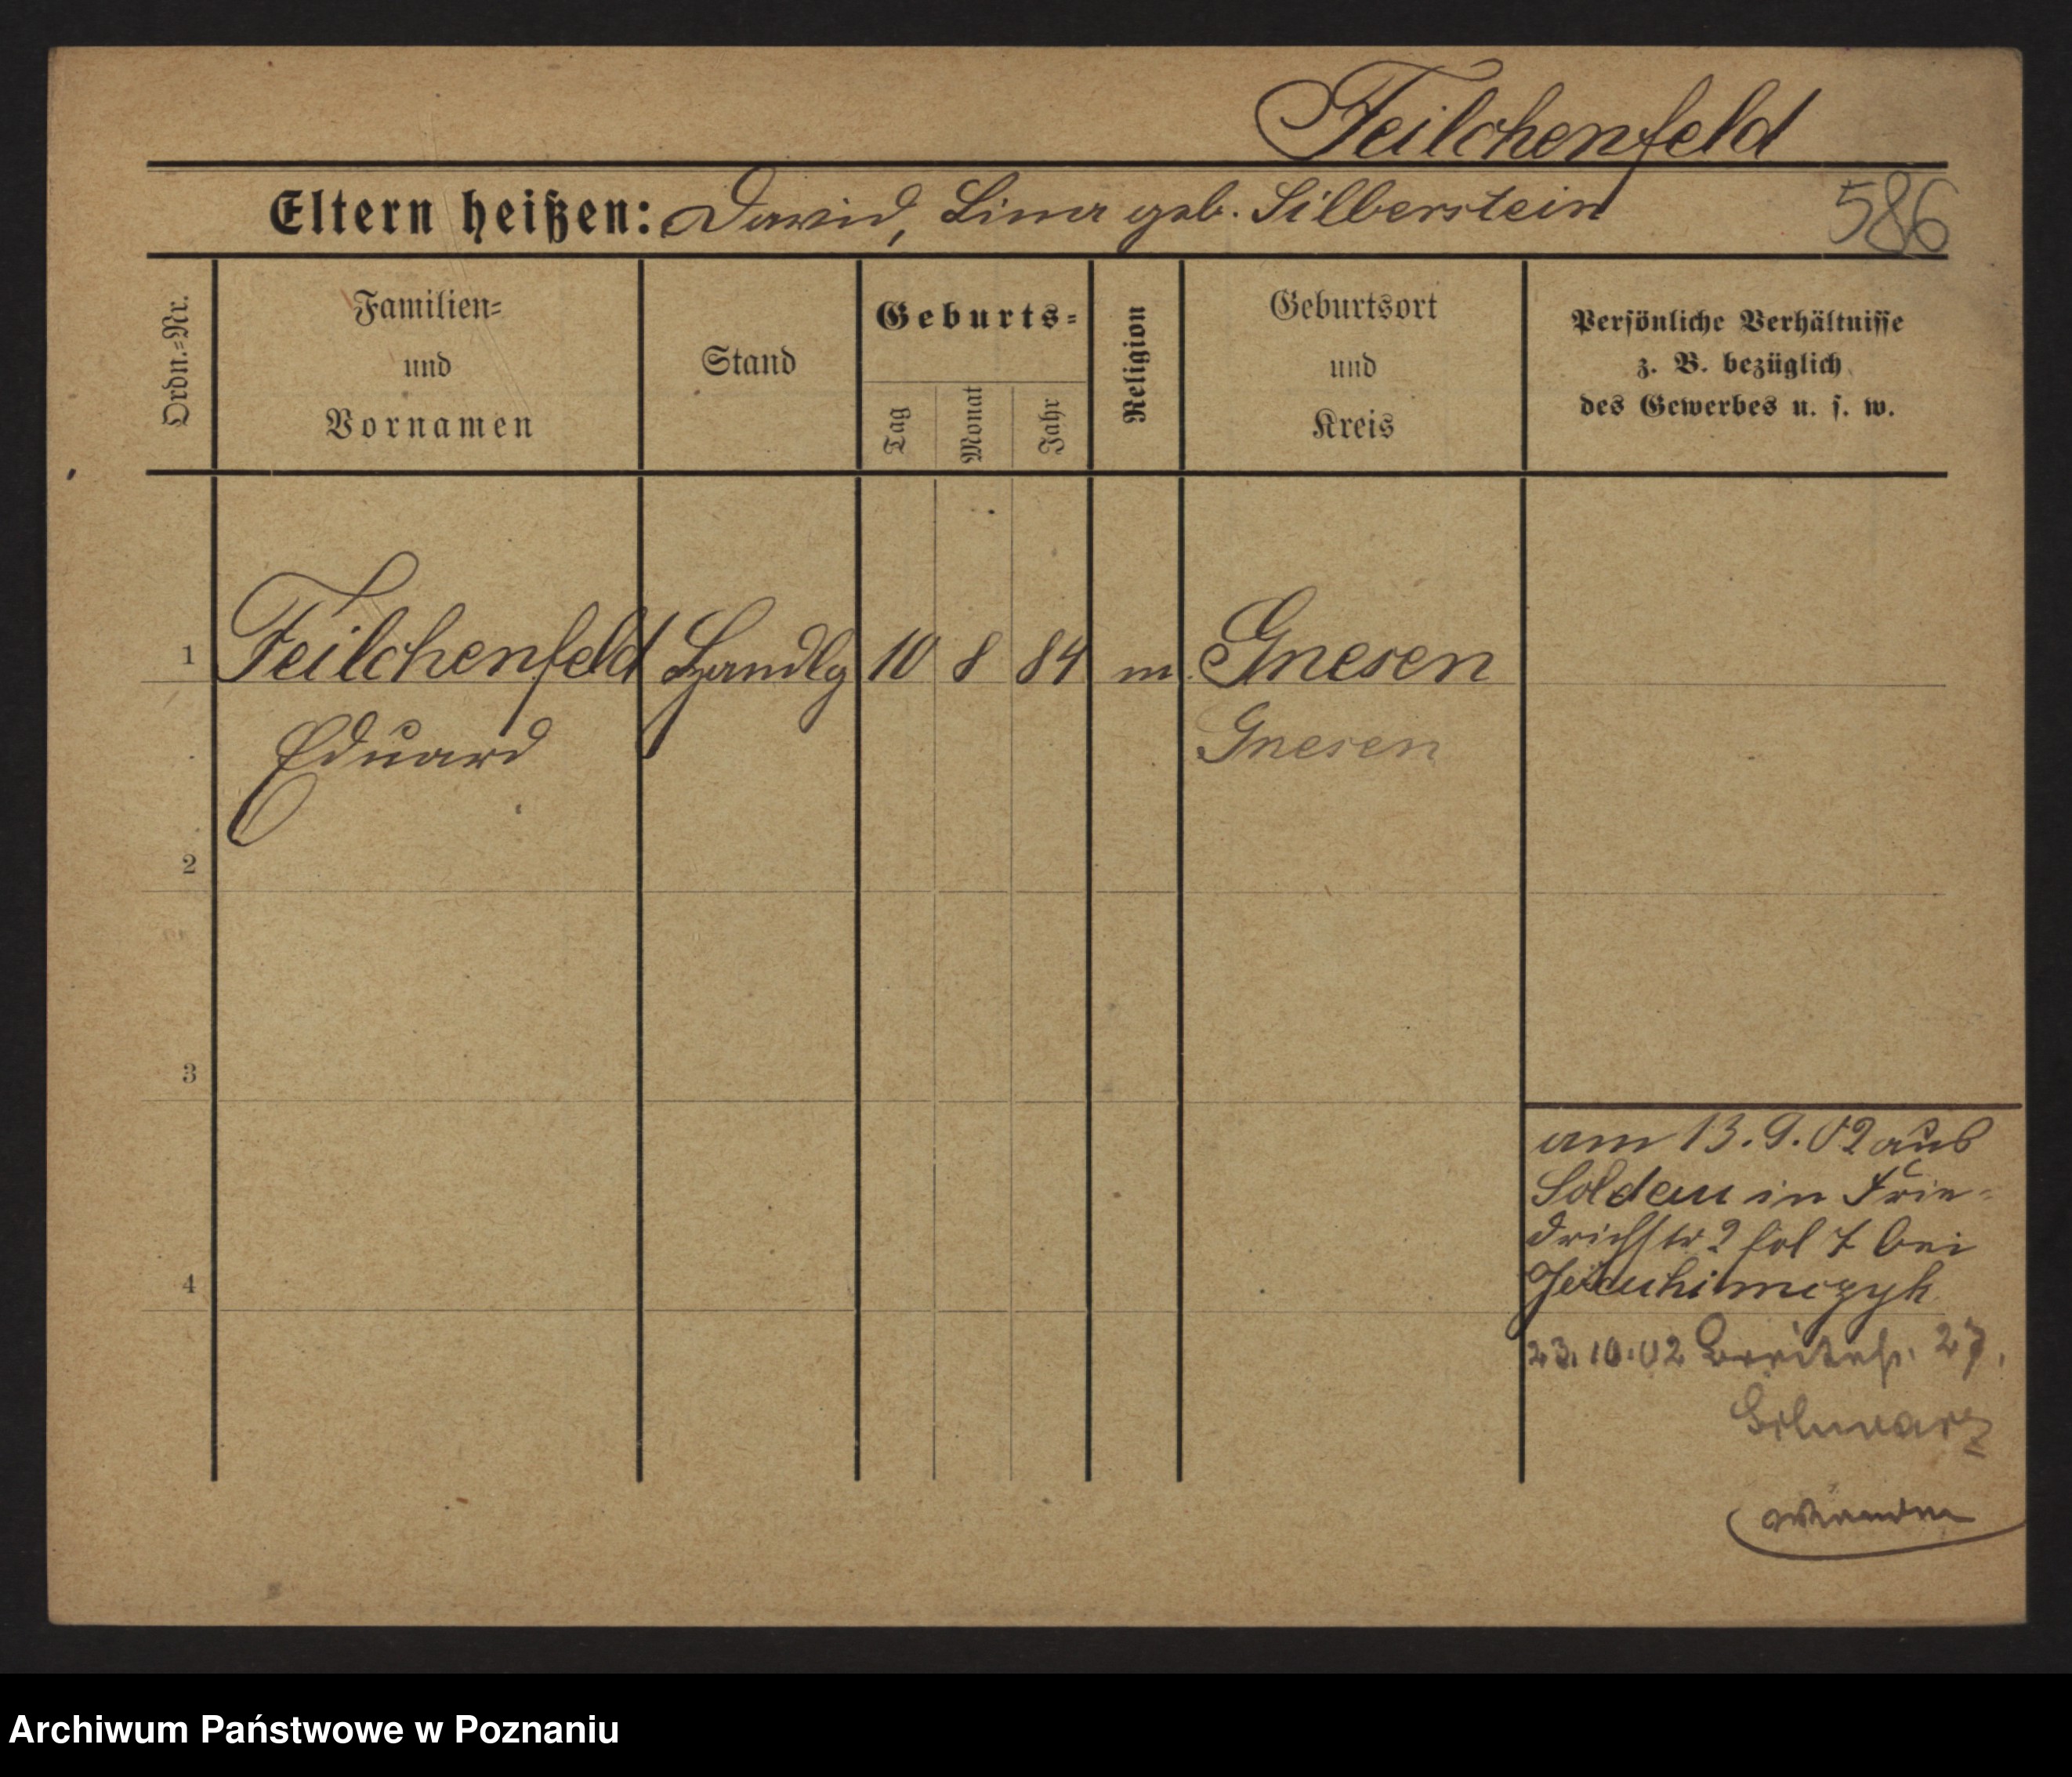 Feilchenfeld
Eltern heißen: David, Lina geb. Silberstein 586
Ordn.-Nr.
Familien-
und
Vornamen
Stand
Geburts-
Tag
Monat
Jahr
Religion
Geburtsort
und
Kreis
Persönliche Verhältnisse
z. B. bezüglich
des Gewerbes u. s. w.
1 Feilchenfeld Handlg 10 8 84 m Gnesen
Eduard Gnesen
2
3
am 13. 9. 02 aus
Soldau in Frie-
drichstr 2 bei
4
23. 10. 02 Breitestr. 27.
Schwarz
Archiwum Państwowe w Poznaniu